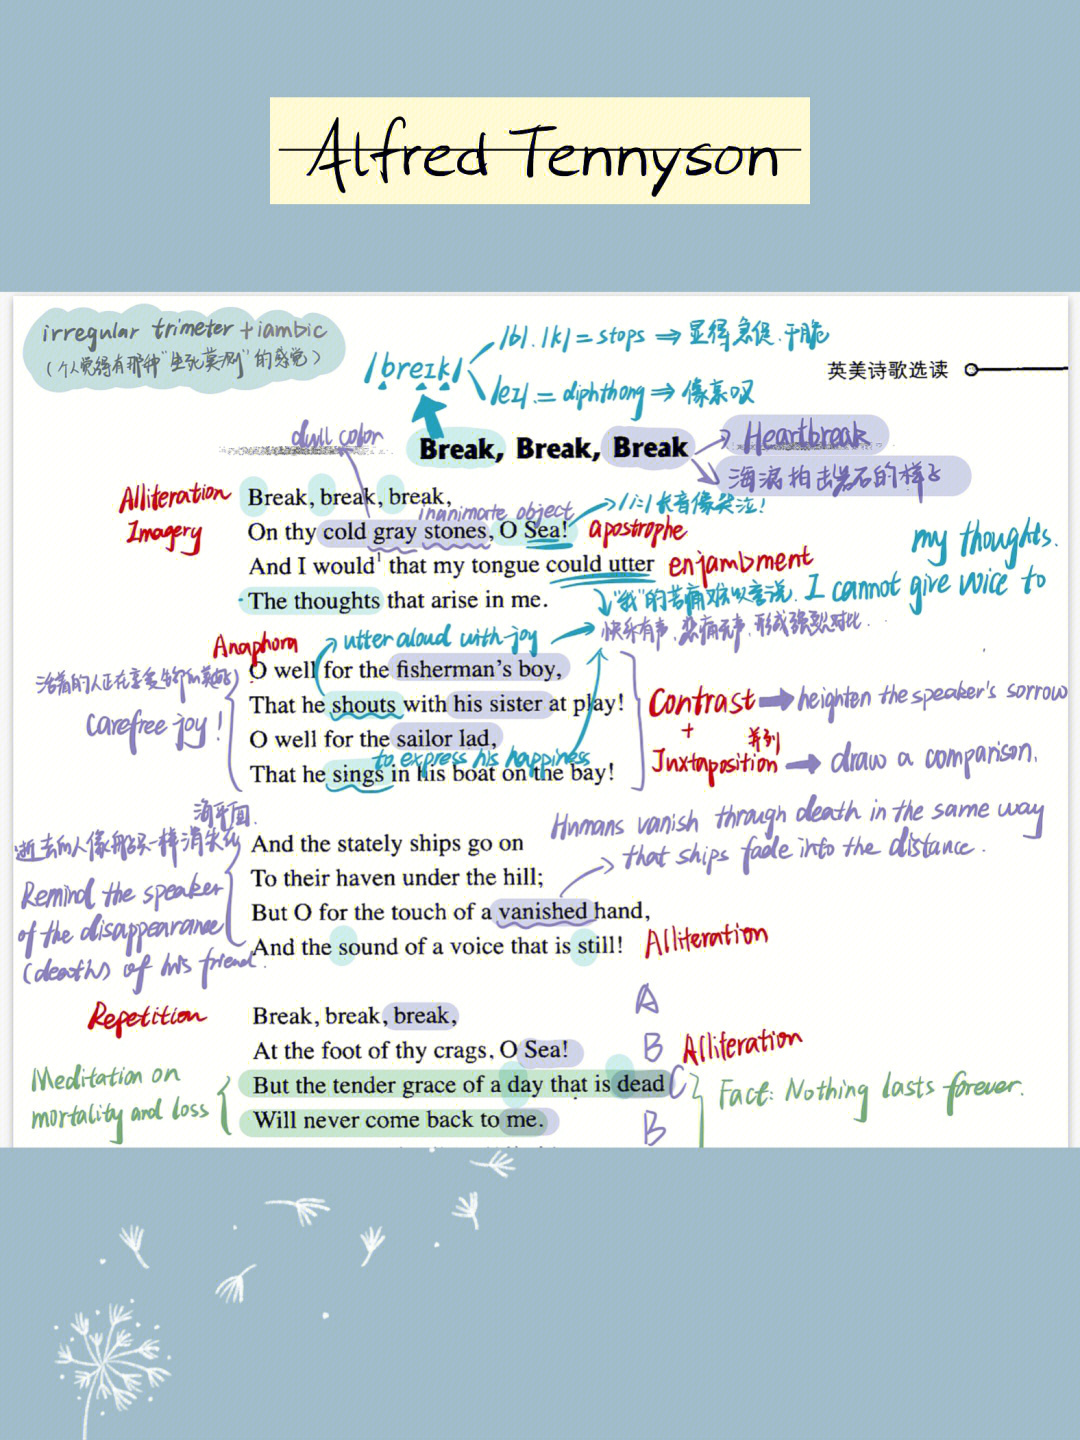 Alfred Tennyson
irregular trimeter + iambic
(个人觉得有那种"生死莫测"的感觉)
/breɪk/
/b/. /k/ = stops ⇒ 显得急促.干脆
/eɪ/. = diphthong ⇒ 像哀叹
英美诗歌选读
dull color
Break, Break, Break
Heartbreak
海浪拍击岩石的样子
Alliteration
Imagery
Break, break, break,
inanimate object
/iː/长音像哭泣!
On thy cold gray stones, O Sea!
apostrophe
And I would¹ that my tongue could utter
enjambment
The thoughts that arise in me.
"我"的苦痛难以言说. I cannot give voice to
my thoughts.
快乐有声,悲痛无声,形成强烈对比.
Anaphora
utter aloud with joy
O well for the fisherman's boy,
That he shouts with his sister at play!
O well for the sailor lad,
to express his happiness
That he sings in his boat on the bay!
活着的人正在享受生命的美好
carefree joy!
Contrast → heighten the speaker's sorrow
+
并列
Juxtaposition → draw a comparison.
海平面.
逝去的人像那船一样消失
Remind the speaker
of the disappearance
(death) of his friend.
Humans vanish through death in the same way
that ships fade into the distance.
And the stately ships go on
To their haven under the hill;
But O for the touch of a vanished hand,
And the sound of a voice that is still!
Alliteration
Repetition
Break, break, break,
A
At the foot of thy crags, O Sea!
B
Alliteration
But the tender grace of a day that is dead
C
Will never come back to me.
B
Meditation on
mortality and loss
Fact: Nothing lasts forever.